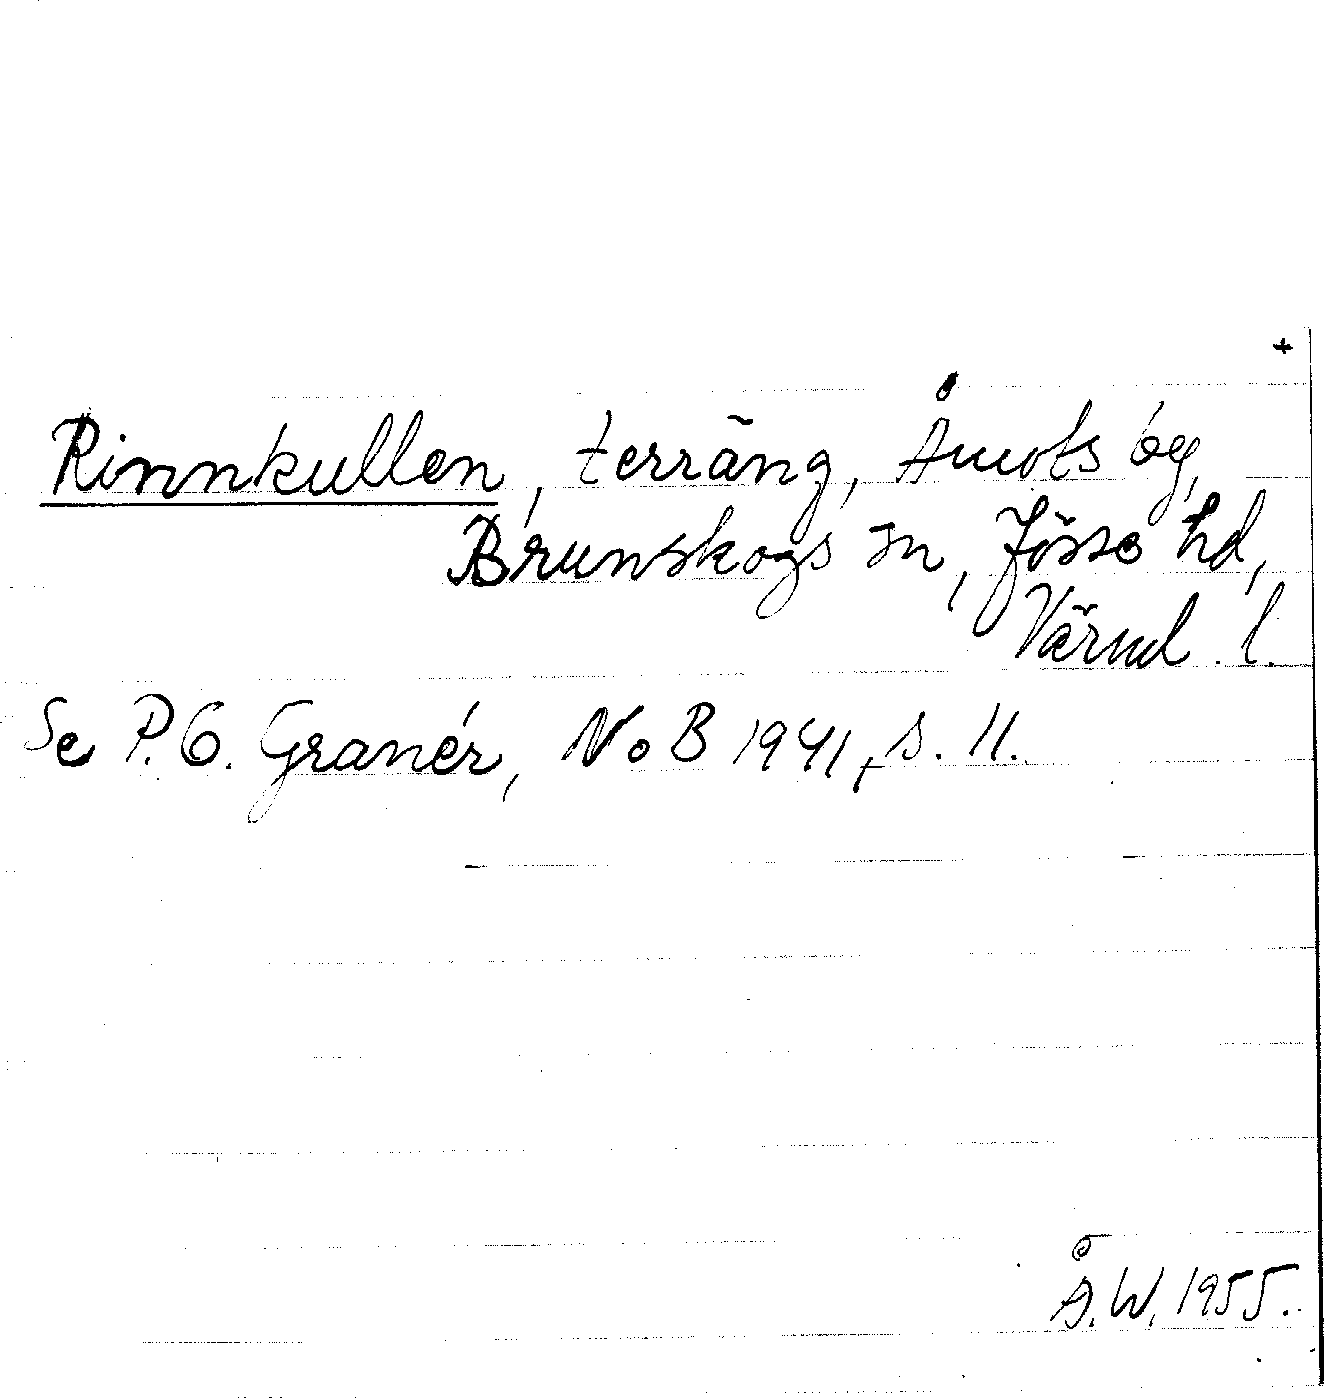 +
Rinnkullen, terräng, Åmots by,
Brunskogs sn, Jösse hd,
Värml. l.
Se P. G. Granér, NoB 1941, s. 11.
Å.W. 1955.